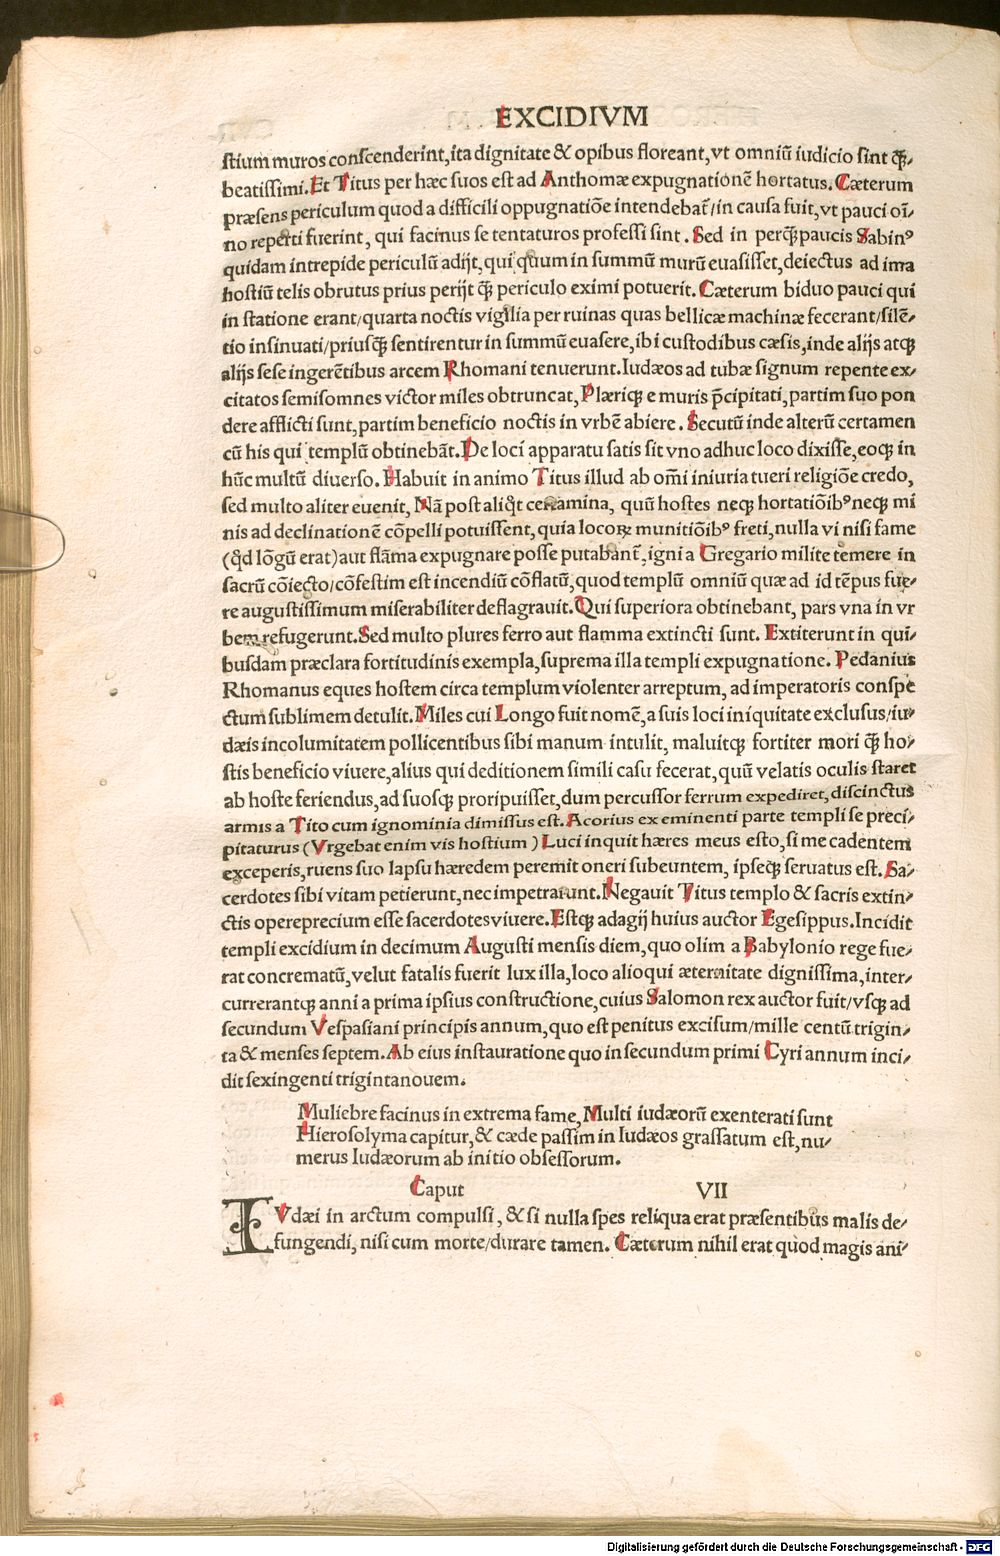 EXCIDIVM
ſtium muros conſcenderint, ita dignitate & opibus floreant, vt omniū iudicio ſint q̄ꝫ/
beatiſſimi. Et Titus per hæc ſuos eſt ad Anthomæ expugnationē hortatus. Cæterum
præſens periculum quod a difficili oppugnatiōe intendebat̄/in cauſa fuit, vt pauci oī/
no reperti fuerint, qui facinus ſe tentaturos profeſſi ſint. Sed in perq̄ꝫ paucis Sabinꝰ
quidam intrepide periculū adijt, qui quum in ſummū murū euaſiſſet, deiectus ad ima
hoſtiū telis obrutus prius perijt q̄ꝫ periculo eximi potuerit. Cæterum biduo pauci qui
in ſtatione erant/quarta noctis vigilia per ruinas quas bellicæ machinæ fecerant/ſilē/
tio inſinuati/priuſq̄ꝫ ſentirentur in ſummū euaſere, ibi cuſtodibus cæſis, inde alijs atqꝫ
alijs ſeſe ingerētibus arcem Rhomani tenuerunt. Iudæos ad tubæ ſignum repente ex/
citatos ſemiſomnes victor miles obtruncat, Plæriqꝫ e muris p̄cipitati, partim ſuo pon
dere afflicti ſunt, partim beneficio noctis in vrbē abiere. Secutū inde alterū certamen
cū his qui templū obtinebāt. De loci apparatu ſatis ſit vno adhuc loco dixiſſe, eoqꝫ in
hūc multū diuerſo. Habuit in animo Titus illud ab om̄i iniuria tueri religiōe credo,
ſed multo aliter euenit, Nā poſt aliq̇t certamina, quū hoſtes neqꝫ hortatiōibꝰ neqꝫ mi
nis ad declinationē cōpelli potuiſſent, quia locoꝝ munitiōibꝰ freti, nulla vi niſi fame
(q̇d lōgū erat) aut flāma expugnare poſſe putabant̄, igni a Gregario milite temere in
ſacrū cōiecto/cōfeſtim eſt incendiū cōflatū, quod templū omniū quæ ad id tēpus fue/
re auguſtiſſimum miſerabiliter deflagrauit. Qui ſuperiora obtinebant, pars vna in vr
bem refugerunt. Sed multo plures ferro aut flamma extincti ſunt. Extiterunt in qui/
buſdam præclara fortitudinis exempla, ſuprema illa templi expugnatione. Pedanius
Rhomanus eques hoſtem circa templum violenter arreptum, ad imperatoris conſpe
ctum ſublimem detulit. Miles cui Longo fuit nomē, a ſuis loci iniquitate excluſus/iu/
dæis incolumitatem pollicentibus ſibi manum intulit, maluitqꝫ fortiter mori q̄ꝫ ho/
ſtis beneficio viuere, alius qui deditionem ſimili caſu fecerat, quū velatis oculis ſtaret
ab hoſte feriendus, ad ſuoſqꝫ proripuiſſet, dum percuſſor ferrum expediret, diſcinctus
armis a Tito cum ignominia dimiſſus eſt. Acorius ex eminenti parte templi ſe preci/
pitaturus (Vrgebat enim vis hoſtium) Luci inquit hæres meus eſto, ſi me cadentem
exceperis, ruens ſuo lapſu hæredem peremit oneri ſubeuntem, ipſeqꝫ ſeruatus eſt. Sa/
cerdotes ſibi vitam petierunt, nec impetrarunt. Negauit Titus templo & ſacris extin/
ctis opereprecium eſſe ſacerdotes viuere. Eſtqꝫ adagij huius auctor Egeſippus. Incidit
templi excidium in decimum Auguſti menſis diem, quo olim a Babylonio rege fue/
rat concrematū, velut fatalis fuerit lux illa, loco alioqui æternitate digniſſima, inter/
currerantqꝫ anni a prima ipſius conſtructione, cuius Salomon rex auctor fuit/vſqꝫ ad
ſecundum Veſpaſiani principis annum, quo eſt penitus exciſum/mille centū trigin/
ta & menſes ſeptem. Ab eius inſtauratione quo in ſecundum primi Cyri annum inci/
dit ſexingenti trigintanouem.
Muliebre facinus in extrema fame, Multi iudæorū exenterati ſunt
Hieroſolyma capitur, & cæde paſſim in Iudæos graſſatum eſt, nu/
merus Iudæorum ab initio obſeſſorum.
Caput VII
IVdæi in arctum compulſi, & ſi nulla ſpes reliqua erat præſentibus malis de/
fungendi, niſi cum morte/durare tamen. Cæterum nihil erat quod magis ani/
Digitalisierung gefördert durch die Deutsche Forschungsgemeinschaft - DFG